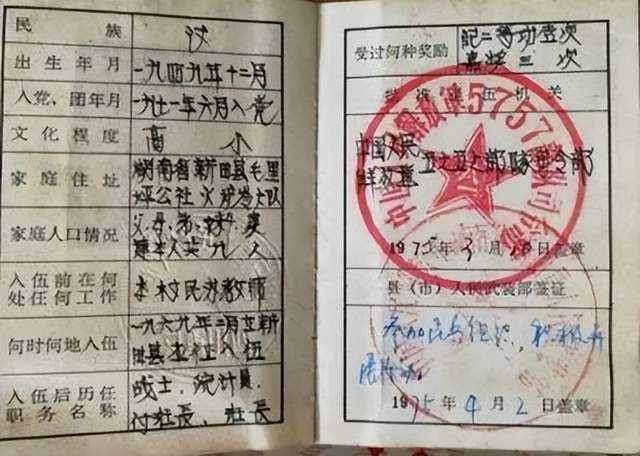 民族 汉
出生年月 一九四九年十二月
入党、团年月 一九七一年六月入党
文化程度 高小
家庭住址 湖南省新田县毛里
坪公社火炉岩大队
家庭人口情况 父、母、弟、妹、妻
连本人共九人
入伍前在何
处任何工作 本村民办教师
何时何地入伍 一九六九年二月在新
田县应征入伍
入伍后历任
职务名称 战士,统计员,
付班长,班长
受过何种奖励 记二等功壹次
嘉奖三次
批准退伍机关
中国人民
解放军 五七五七部队司令部
5757部队司令部
1975年3月10日签章
县(市)人民武装部签证
参加民兵组织,积极开
展活动
1975年4月2日签章